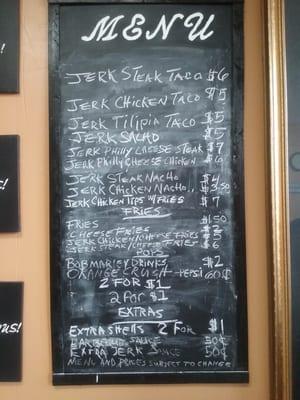 MENU
JERK STEAK TACO $6
JERK CHICKEN TACO $5
JERK TILIPIA TACO $5
JERK SALAD $5
JERK PHILLY CHEESE STEAK $7
JERK PHILLY CHEESE CHICKEN $6
JERK STEAK NACHO $4
JERK CHICKEN NACHO.. $3.50
JERK CHICKEN TIPS W/FRIES $7
FRIES
FRIES $1.50
CHEESE FRIES $2
JERK CHICKEN/CHEESE FRIES $5
JERK STEAK/CHEESE FRIES $6
POP'S
BOB MARLEY DRINKS $2
ORANGE CRUSH - PEPSI 60¢
2 FOR $1
2 FOR $1
EXTRAS
EXTRA SHELLS 2 FOR $1
BARBEQUE SAUCE 50¢
EXTRA JERK SAUCE 50¢
MENU AND PRICES SUBJECT TO CHANGE